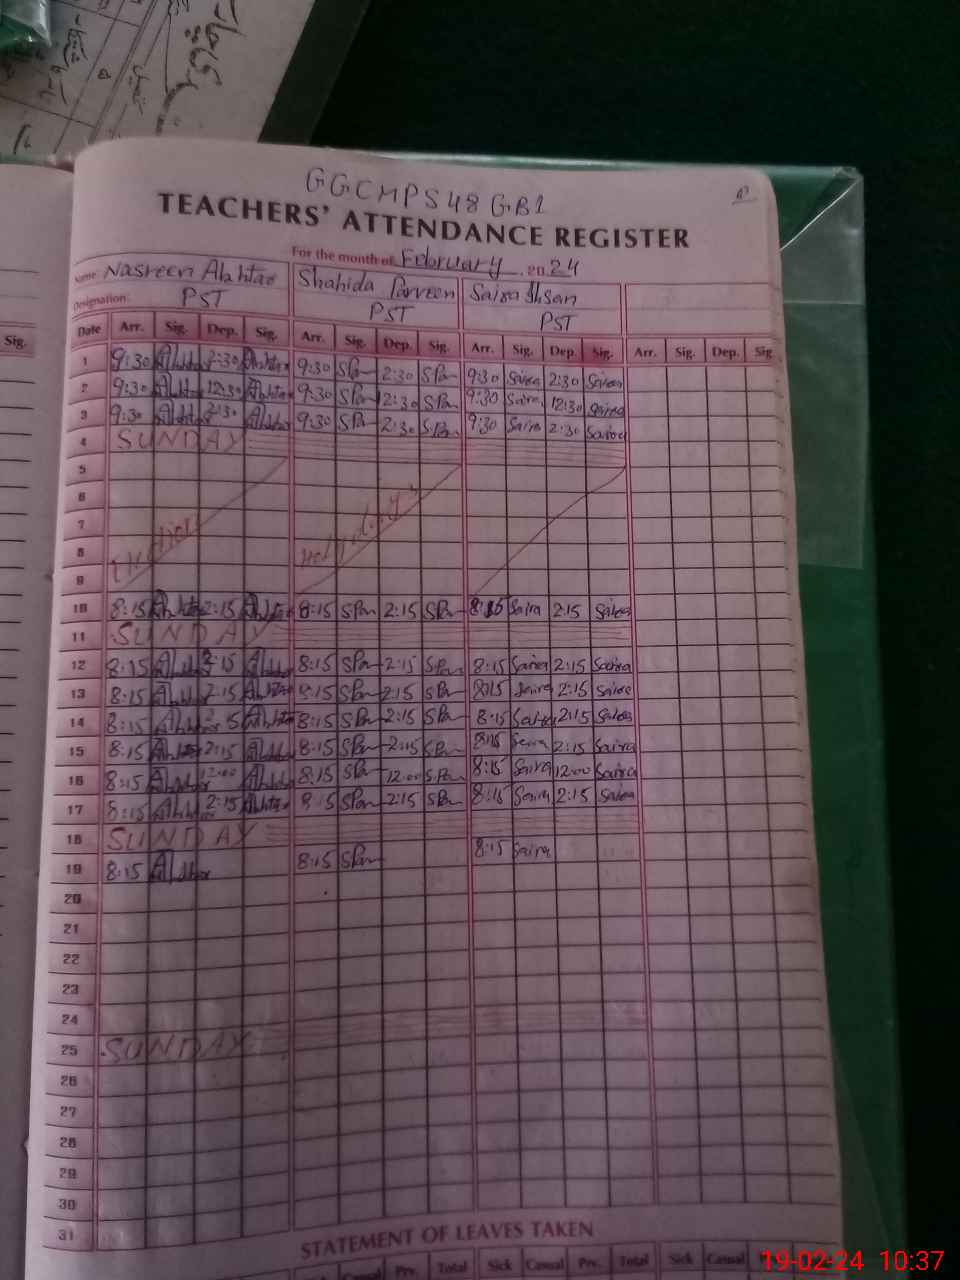 GGCMPS 48 GB1
TEACHERS' ATTENDANCE REGISTER
For the month of February 2024
Name: Nasreen Akhtar Shahida Parveen Saira Ihsan
Designation: PST PST PST
Sig. Date Arr. Sig. Dep. Sig. Arr. Sig. Dep. Sig. Arr. Sig. Dep. Sig. Arr. Sig. Dep. Sig
1 9:30 Akhtar 2:30 Akhtar 9:30 SPar 2:30 SPar 9:30 Saira 2:30 Saira
2 9:30 Akhtar 12:30 Akhtar 9:30 SPar 2:30 SPar 9:30 Saira 12:30 Saira
3 9:30 Akhtar 2:30 Akhtar 9:30 SPar 2:30 SPar 9:30 Saira 2:30 Saira
4 SUNDAY
5
6
7
8 Election Holydays
9
10 8:15 Akhtar 2:15 Akhtar 8:15 SPar 2:15 SPar 8:15 Saira 2:15 Saira
11 SUNDAY
12 8:15 Akhtar 2:15 Akhtar 8:15 SPar 2:15 SPar 8:15 Saira 2:15 Saira
13 8:15 Akhtar 2:15 Akhtar 8:15 SPar 2:15 SPar 8:15 Saira 2:15 Saira
14 8:15 Akhtar 2:15 Akhtar 8:15 SPar 2:15 SPar 8:15 Saira 2:15 Saira
15 8:15 Akhtar 2:15 Akhtar 8:15 SPar 2:15 SPar 8:15 Saira 2:15 Saira
16 8:15 Akhtar 12:00 Akhtar 8:15 SPar 12:00 SPar 8:15 Saira 12:00 Saira
17 8:15 Akhtar 2:15 Akhtar 8:15 SPar 2:15 SPar 8:15 Saira 2:15 Saira
18 SUNDAY
19 8:15 Akhtar 8:15 SPar 8:15 Saira
20
21
22
23
24
25 SUNDAY
26
27
28
29
30
31
STATEMENT OF LEAVES TAKEN
Sick Casual Prv. Total Sick Casual Prv. Total Sick Casual Prv. Total
19-02-24 10:37